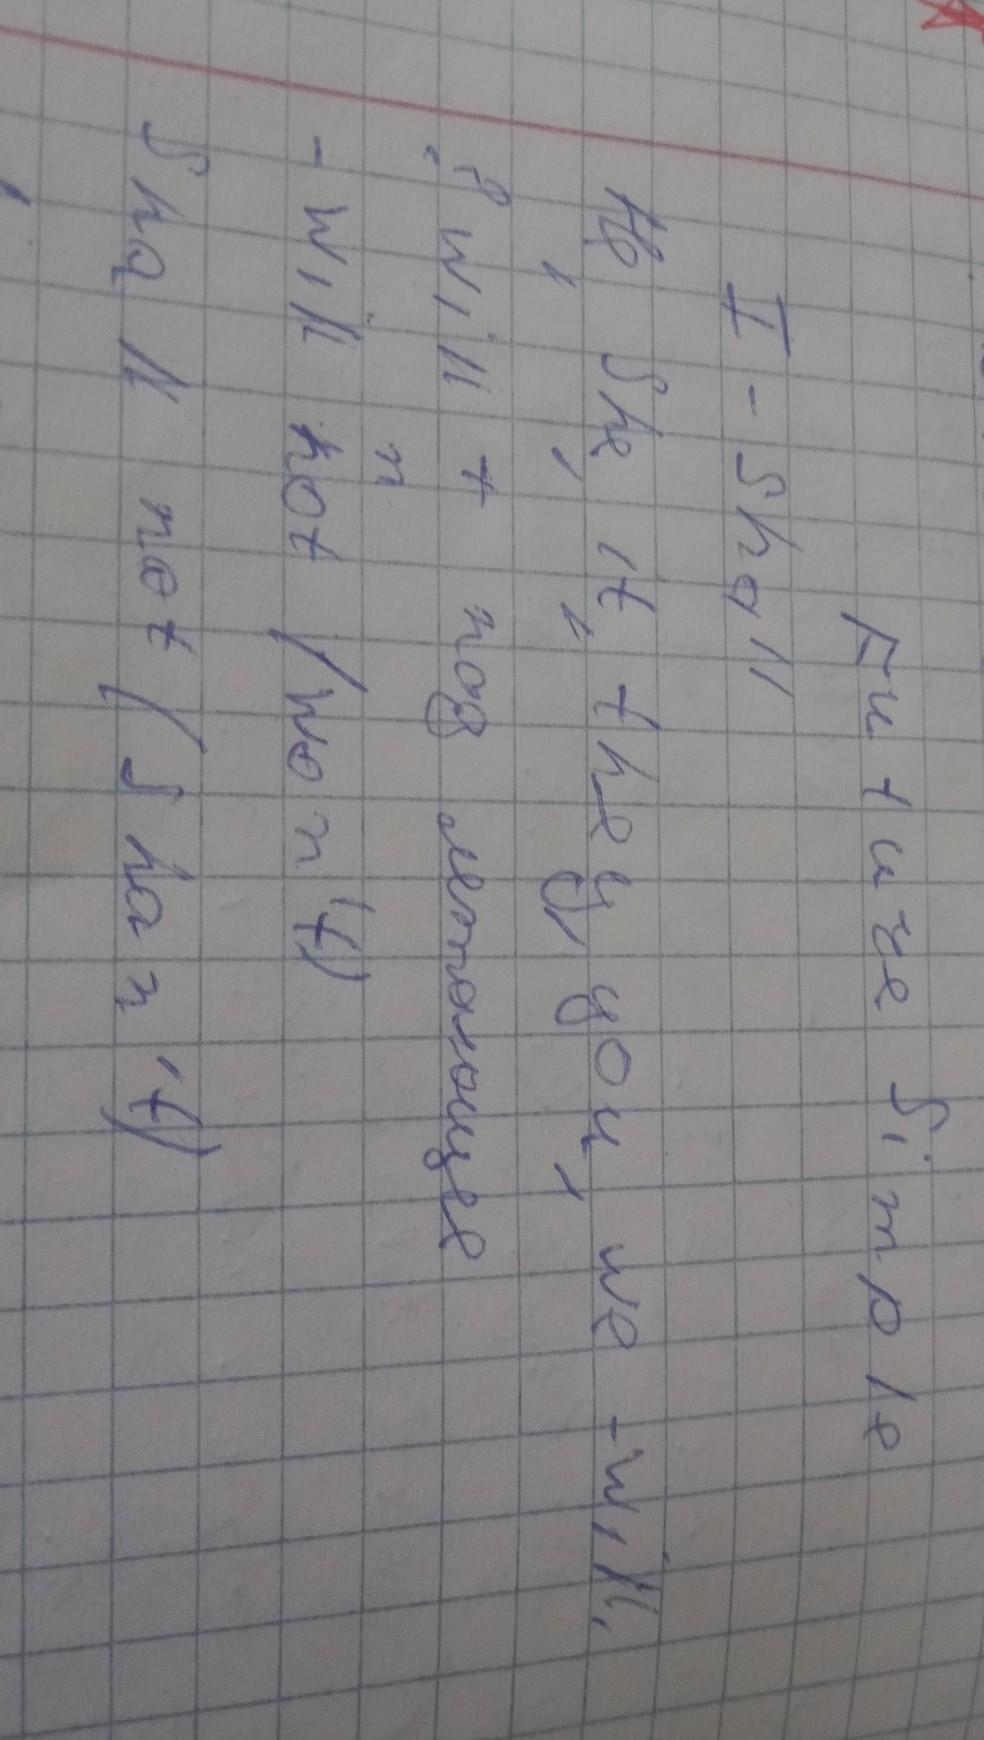 Future Simple
I - Shall
He, She, it, they, you, we - will.
? will + под летающее
- will not (won't)
Shall not (Shan't)